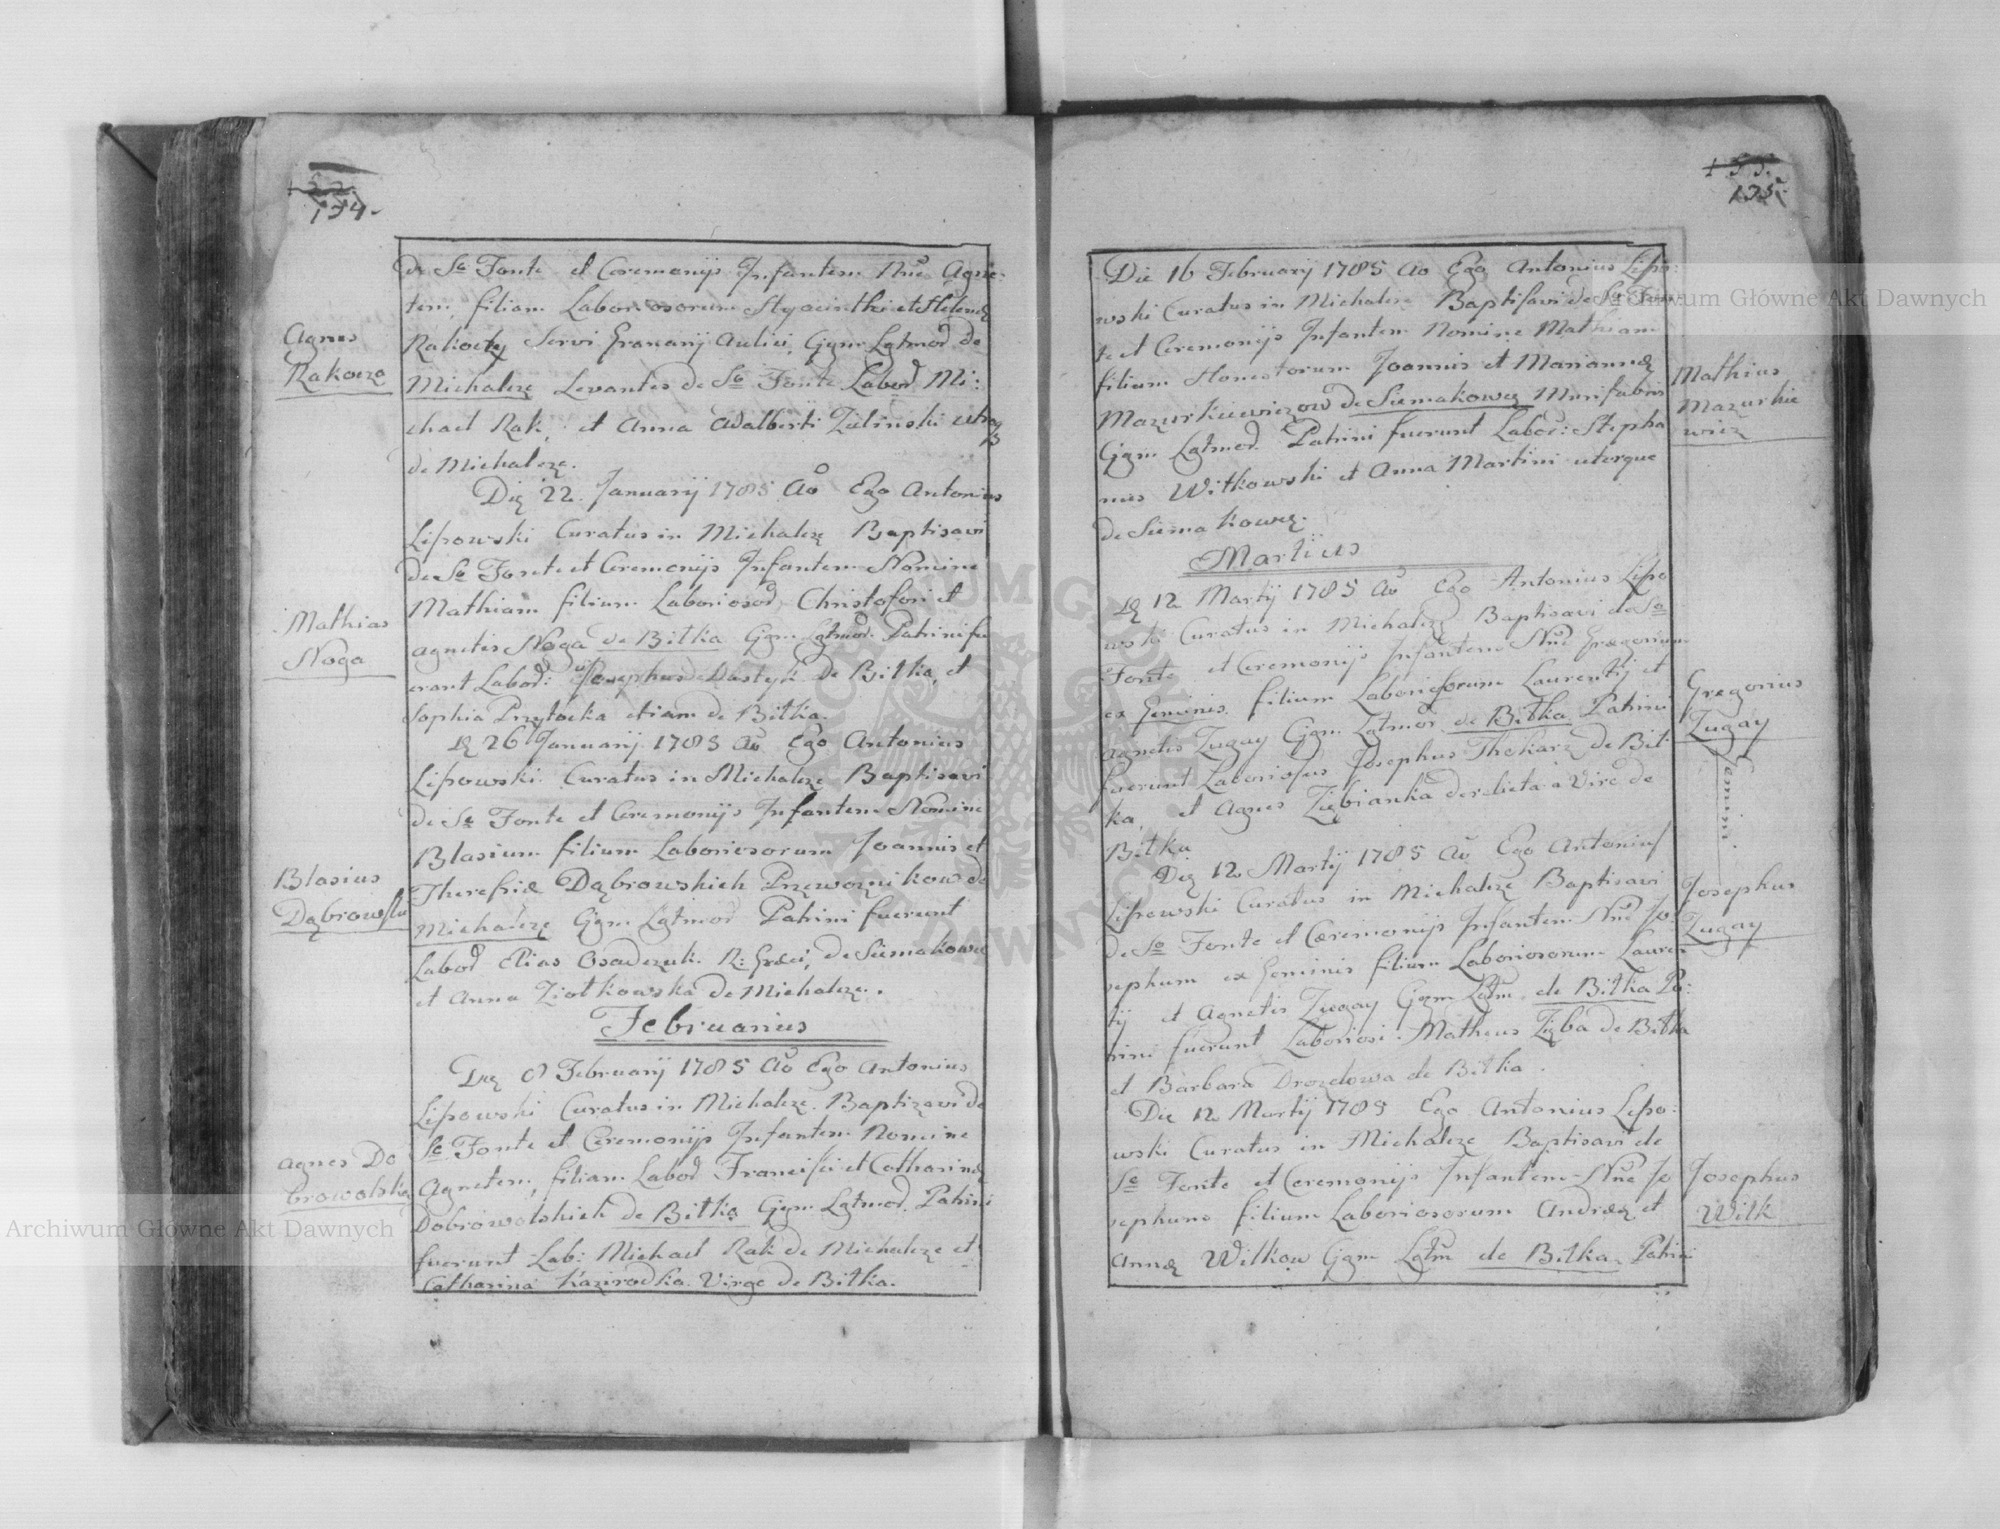 134.
Agnes
Rakocza
Mathias
Noga
Blasius
Dąbrowski
Agnes Do
browolska
de So Fonte et Ceremonijs Infantem Nne Agne-
tem, filiam Laboriosorum Hyacinthi et Helenæ
Rakoczy Servi Granarij Aulici, Cjgm Lgtmoꝝ de
Michalcze Levantes de So Fonte Laboꝝ Mi:
chael Rak, et Anna Adalberti Zielinski utraq
de Michalcze.
Die 22 Januarij 1785 Ao Ego Antonius
Lipowski Curatus in Michalcze Baptisavi
de So Fonte et Ceremonijs Infantem Nomine
Mathiam filium Laborioso Christofori et
Agnetis Noga de Bitka Cjgm Lgtmoꝝ Patrini fu
erant Laboꝝ: Josephus de Bitka, et
Sophia Przytocka etiam de Bitka.
De 26 Januarij 1785 Ao Ego Antonius
Lipowski Curatus in Michalcze Baptisavi
de So Fonte et Ceremonijs Infantem Nomine
Blasium filium Laboriosorum Joannis et
Theresiæ Dąbrowskich Przewoznikow de
Michalcze Cjgm Lgtmoꝝ Patrini fuerunt
Laboꝝ Elias Osadczuk R: Græci, de Siemakowce
et Anna Ziołkowska de Michalcze.
Februarius
Die 8 Februarij 1785 Ao Ego Antonius
Lipowski Curatus in Michalcze Baptizavi de
So Fonte et Ceremonijs Infantem Nomine
Agnetem, filiam Laboꝝ Francisci et Catharinæ
Dobrowolskich de Bitka Cjgm Lgtmoꝝ. Patrini
fuerunt Lab: Michael Rak de Michalcze et
Catharina Kazirodka Virgo de Bitka.
135.
135.
Die 16 Februarij 1785 Ao Ego Antonius Lipo:
wski Curatus in Michalcze Baptisavi de So Fon
te et Ceremonijs Infantem Nomine Mathiam
filium Honestorum Joannis et Mariannæ
Mazurkiewiczow de Siemakowce Murifabris
Cjgm Lgtmoꝝ Patrini fuerunt Labor: Stepha
nus Witkowski et Anna Martini uterque
de Siemakowce.
Martius
De 12 Martij 1785 Ao Ego Antonius Lipo
wski Curatus in Michalcze Baptisavi de So
Fonte et Ceremonijs Infantem Nne Gregorium
ex Geminis filium Laboriosorum Laurentij et
Agnetis Zugay Cjgm Lgtmoꝝ de Bitka Patrini
fuerunt Laboriosus Josephus Thokarz de Bit-
ka, et Agnes Ziębianka derelicta a Viro de
Bitka
Die 12 Martij 1785 Ao Ego Antonius
Lipowski Curatus in Michalcze Baptisavi
de So Fonte et Ceremonijs Infantem Nne Jo
sephum ex Geminis filium Laboriosorum Lauren
tij et Agnetis Zugay Cjgm Lgtm de Bitka Pa:
trini fuerunt Laboriosi Matheus Zięba de Bitka
et Barbara Drozdowa de Bitka.
Die 12 Martij 1785 Ego Antonius Lipo:
wski Curatus in Michalcze Baptisavi de
So Fonte et Ceremonijs Infantem Nne Jo
sephum filium Laboriosorum Andreæ et
Annæ Wilkow Cjgm Lgtm de Bitka Patrini
Mathias
Mazurkie
wicz
Gregorius
Zugay
Gemini.
Josephus
Zugay
Josephus
Wilk
Archiwum Główne Akt Dawnych
Archiwum Główne Akt Dawnych